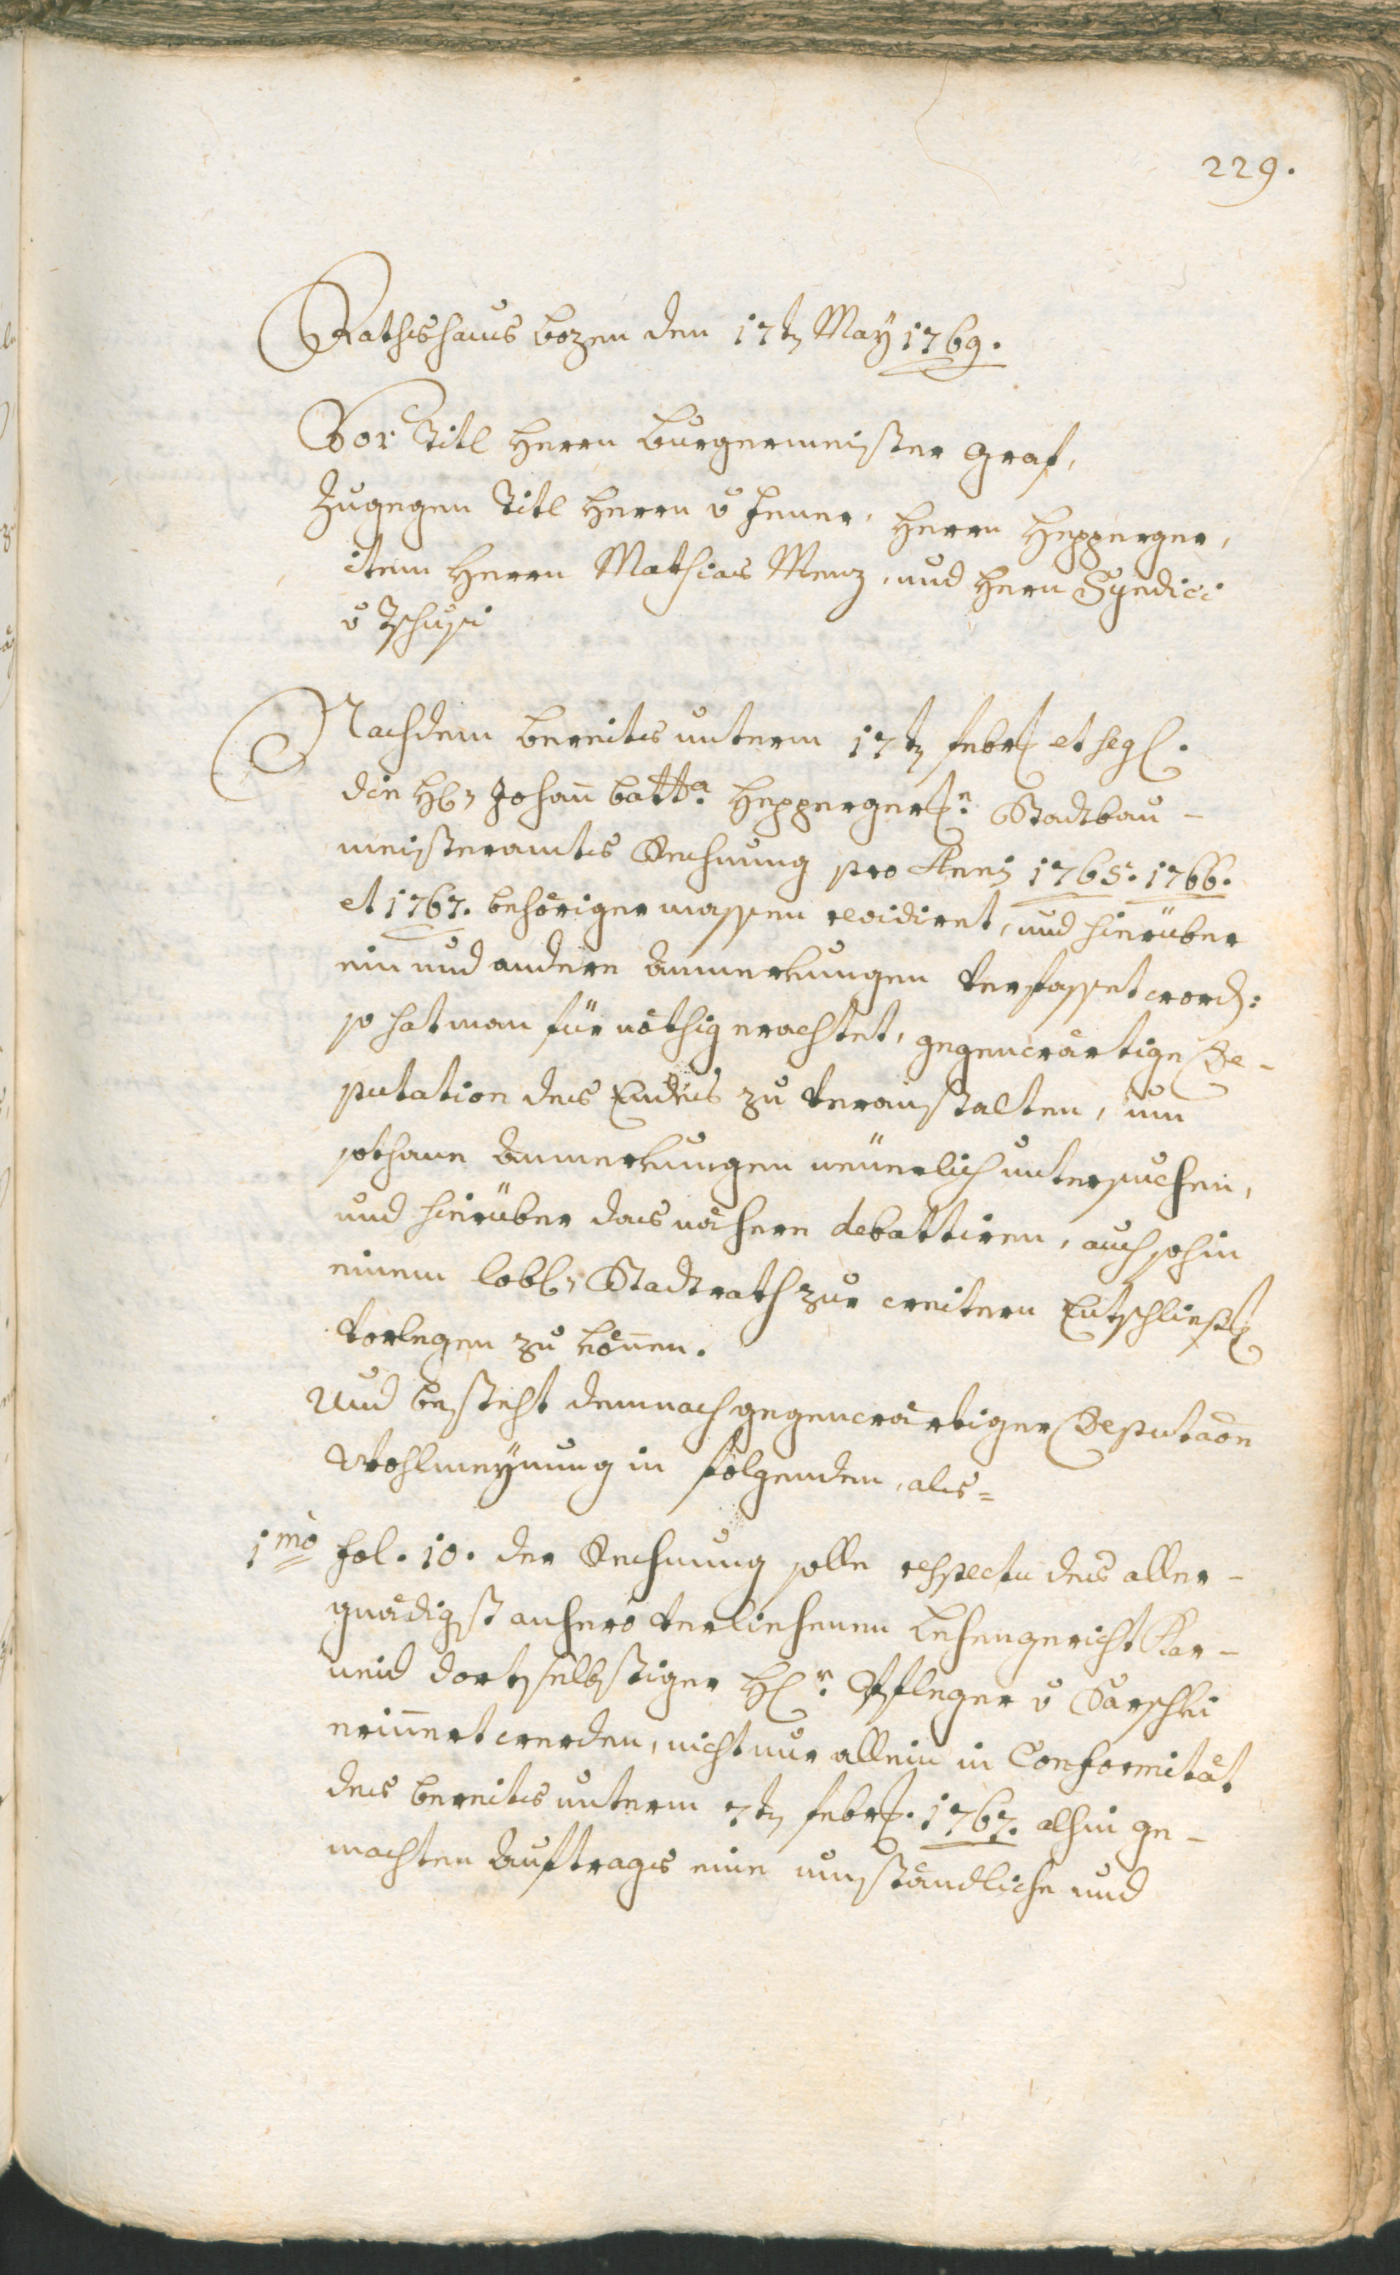 229.
Rathshaus bozen den 17tn May 1769.
Vor Titl Herrn Burgermeister Graf,
Zugegen Titl Herrn v Jenner, Herrn Hepperger,
item Herrn Mathias Menz, und Hern Syndici
v Tschusi
Nachdem bereits unterm 17tn febr. et seq.
die H. Johann batta. Heppergern. Stadtbau-
meisteramts Rechnung pro Annis 1765. 1766.
et 1767. behöriger massen revidiret, und hierüber
ein und andere Anmerkungen verfasset word:
so hat man für nöthig erachtet, gegenwärtige De-
putation des Endes zu veranstalten, um
sothane Anmerkungen neüerlich untersuchen,
und hierüber das nähere debattiren, auch sohin
einem lobl. Stadtrath zur weitern Entschließ.
vorlegen zu können.
Und besteht demnach gegenwärtiger Deputaõn
Wohlmeynung in folgenden, als=
1mo fol. 10. der Rechnung solle respectu des aller-
gnädigst anhero verliehenen Lehengericht Kar-
neid dortselbstiger H.r. Pfleger v
erinnert werden, nicht nur allein in Conformität
des bereits unterm 7tn febr. 1767. alhin ge-
machten Auftrags eine umständliche und